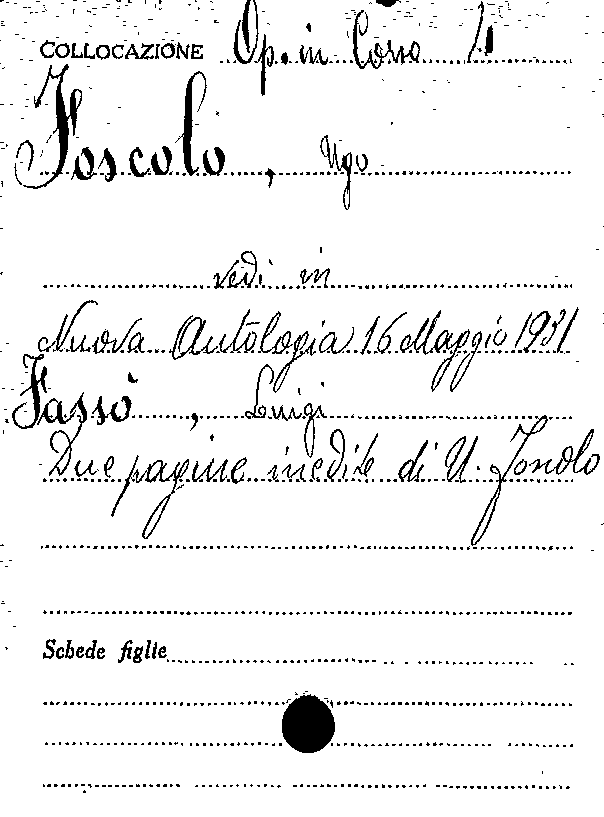 COLLOCAZIONE Op. in Corso 4
Foscolo, Ugo
vedi in
Nuova Antologia 16 Maggio 1931
Fassò, Luigi
Due pagine inedite di U. Foscolo
Schede figlie